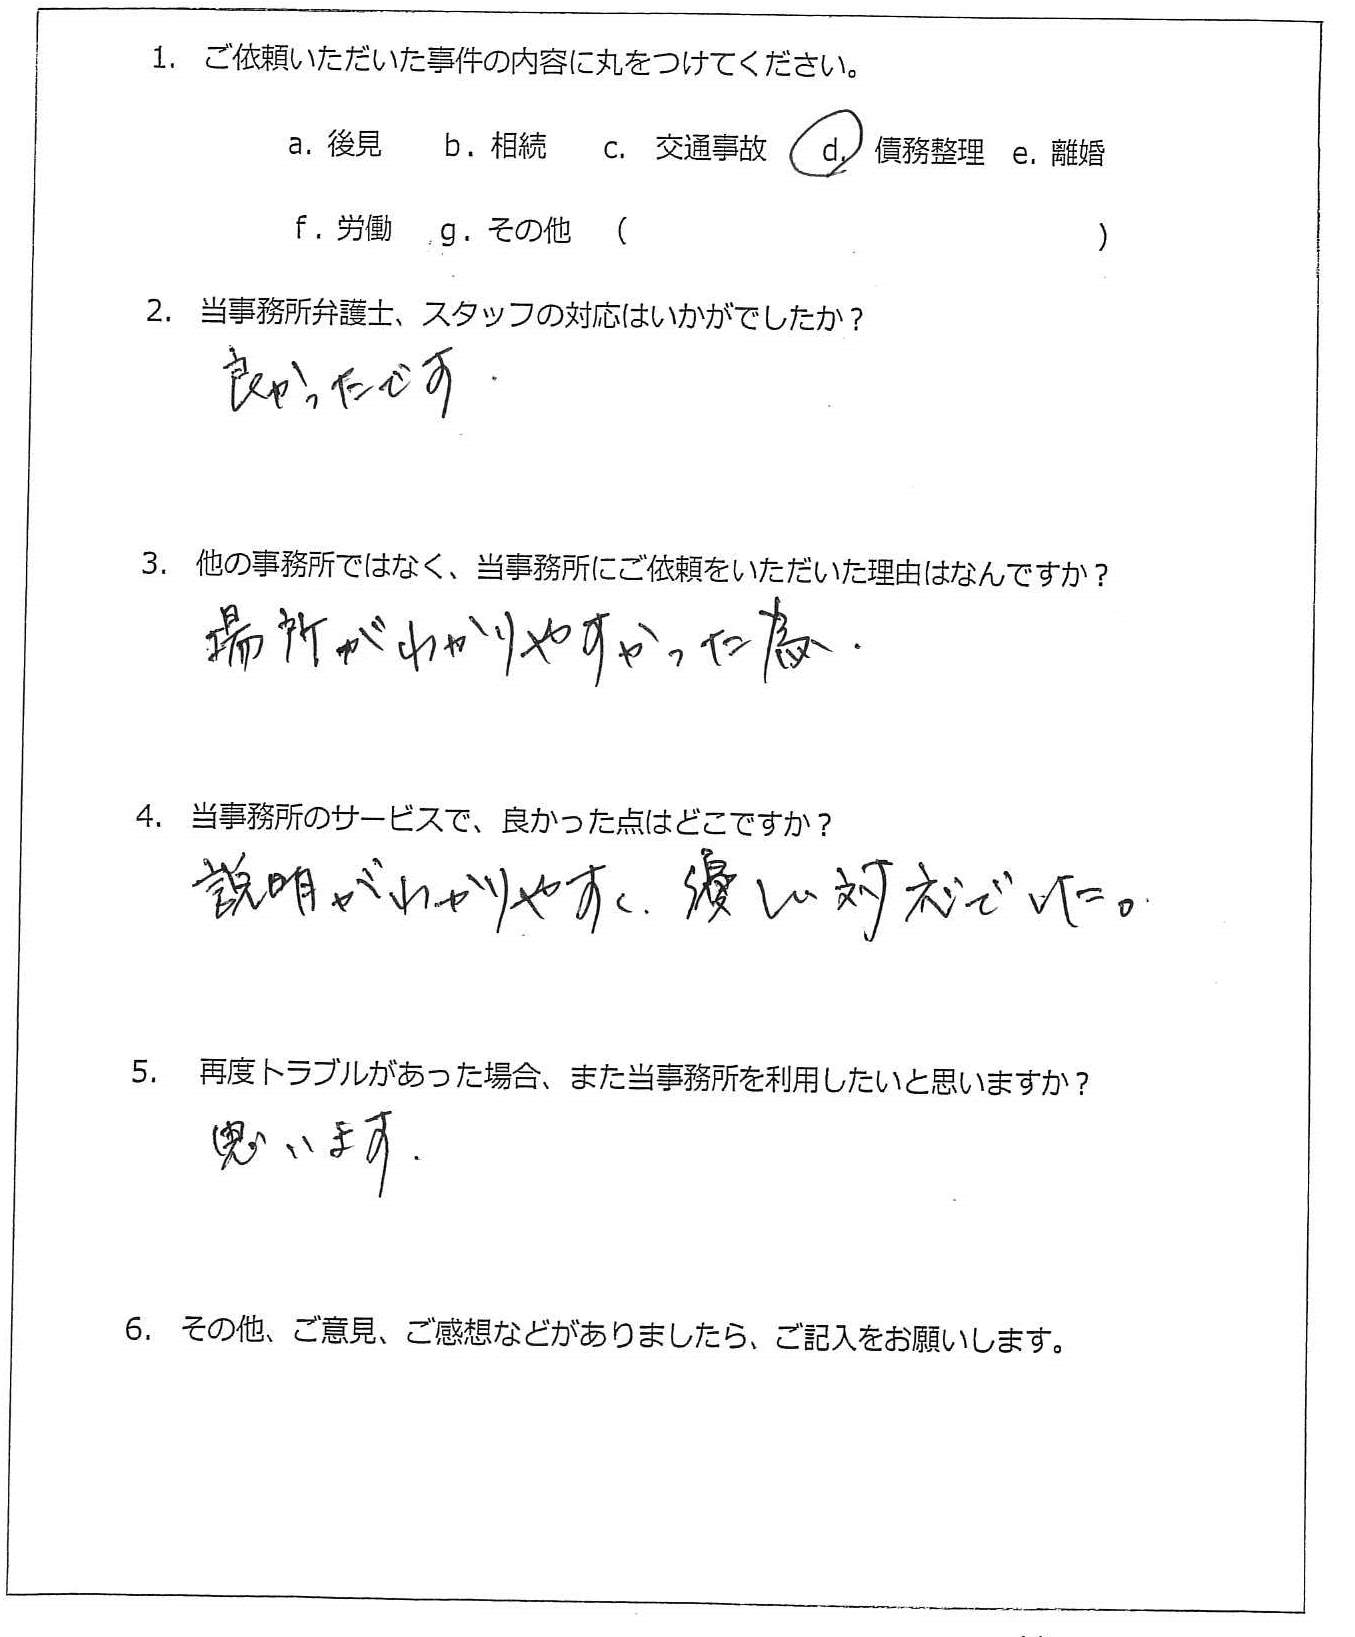 1. ご依頼いただいた事件の内容に丸をつけてください。
a. 後見 b. 相続 c. 交通事故 d. 債務整理 e. 離婚
f. 労働 g. その他 ( )
2. 当事務所弁護士、スタッフの対応はいかがでしたか？
良かったです.
3. 他の事務所ではなく、当事務所にご依頼をいただいた理由はなんですか？
場所がわかりやすかった為.
4. 当事務所のサービスで、良かった点はどこですか？
説明がわかりやすく、優しい対応でした。
5. 再度トラブルがあった場合、また当事務所を利用したいと思いますか？
思います.
6. その他、ご意見、ご感想などがありましたら、ご記入をお願いします。